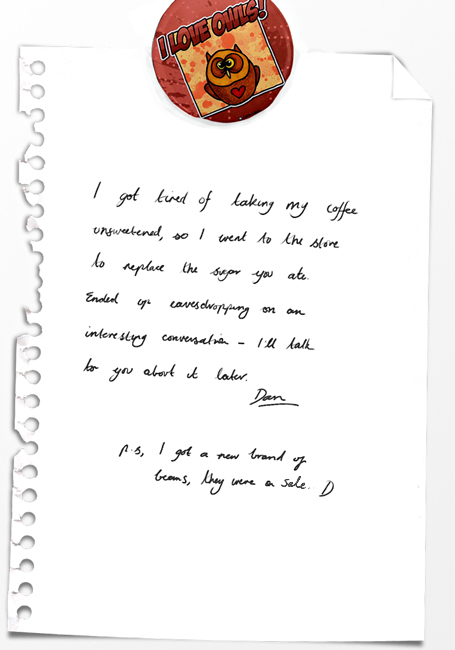 I LOVE OWLS!
I got tired of taking my coffee
unsweetened, so I went to the store
to replace the sugar you ate.
Ended up eavesdropping on an
interesting conversation - I'll talk
to you about it later.
Dan
p.s, I got a new brand of
beans, they were on sale. D